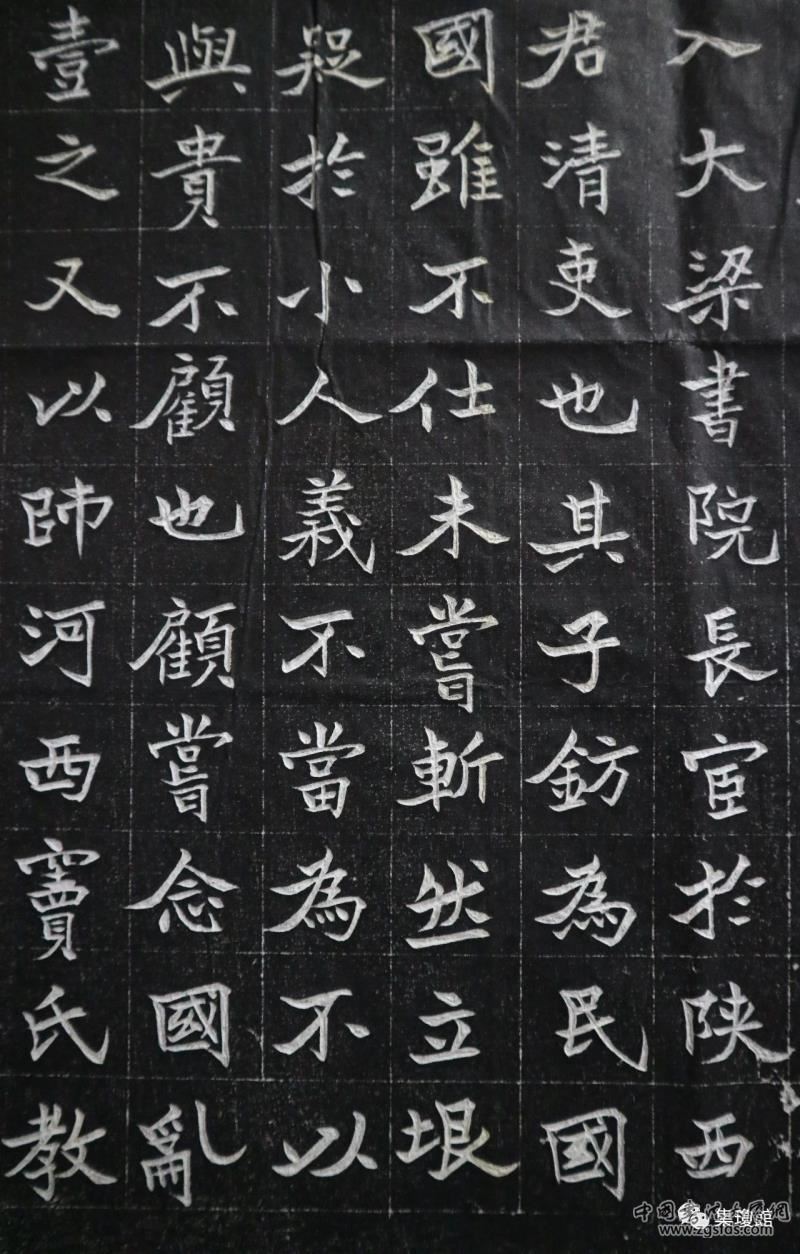 入大梁書院長宦於陝西
君清吏也其子鈁為民國
國雖不仕未嘗斬然立垠
疑於小人義不當為不以
與貴不顧也顧嘗念國亂
壹之又以師河西竇氏教
中國書法
集瓊館
www.zgsfds.com